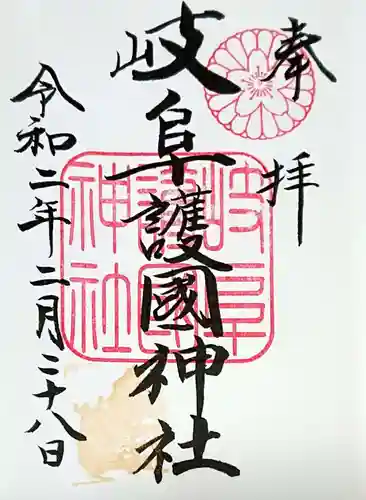 奉拝
岐阜護國神社
令和二年二月二十八日
岐阜護國神社